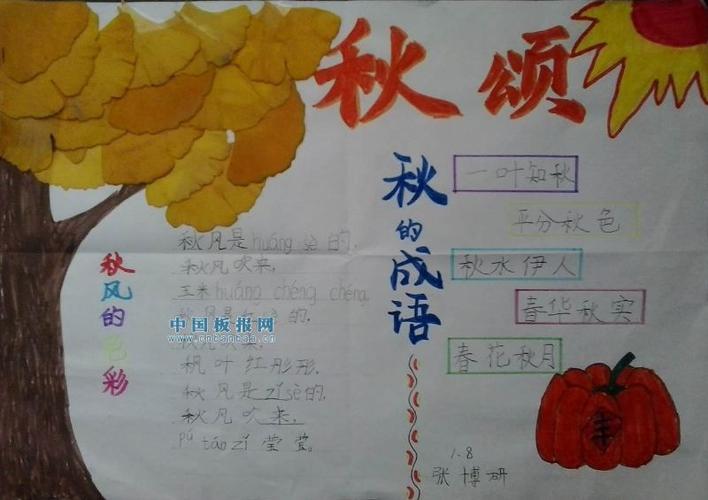 秋颂
秋的成语
一叶知秋
平分秋色
秋水伊人
春华秋实
春花秋月
秋风的色彩
秋风是huáng sè的,
秋风吹来,
玉米huáng chéng chéng
秋风是红色的,
秋风吹来,
枫叶红彤彤.
秋风是zǐsè的,
秋风吹来,
pú táo zǐ 莹莹.
中国板报网
www.cnbanbao.cn
丰
1.8
张博研